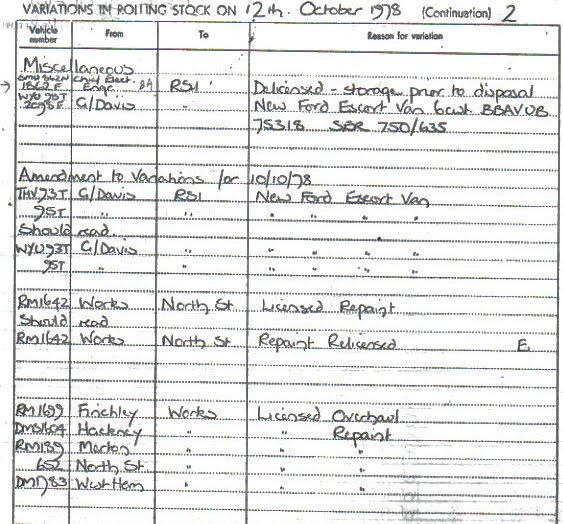 VARIATIONS IN ROLLING STOCK ON 12th. October 1978 (Continuation) 2
Vehicle number From To Reason for variation
Miscellaneous
1862F Engr. 84 RS1 Delicensed - storage prior to disposal
WYU 95T
2098F G/Davis " New Ford Escort Van 6cwt BBAVUB
75318 SBR 750/635
Amendment to Variations for 10/10/78
THV73T G/Davis RS1 New Ford Escort Van
95T " " " " " "
Should read
WYU93T G/Davis " " " " "
95T " " " " " "
RM1642 Works North St Licensed Repaint
Should read
RM1642 Works North St Repaint Relicensed E
RM1699 Finchley Works Licensed Overhaul
DMS1604 Hackney " " Repaint
RM189 Merton " " "
652 North St. " " "
DM1783 West Ham " " "